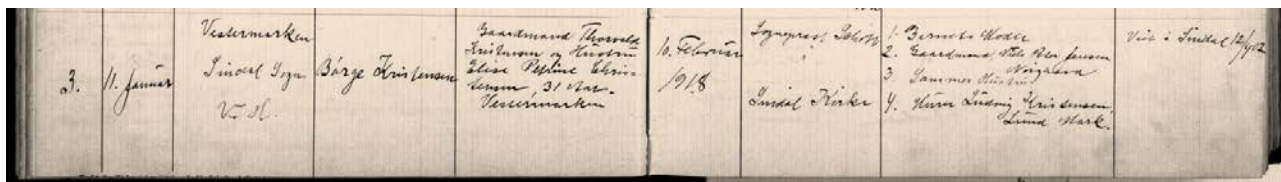 3.
11. Januar
Vestermarken
Sindal Sogn
V. H.
Børge Kristensen
Gaardmand Thorvald
Kristensen og Hustru
Elise Petrine Chris-
tensen, 31 Aar.
Vestermarken
10. Februar
1918
Sognepræst
Sindal Kirke
1. Barnets Moder
2. Gaardmand Niels Peter Jensen
3. Sammes Hustru
4. Ludvig Kristensen,
Lund Mark.
Viet i Sindal 12/4 12